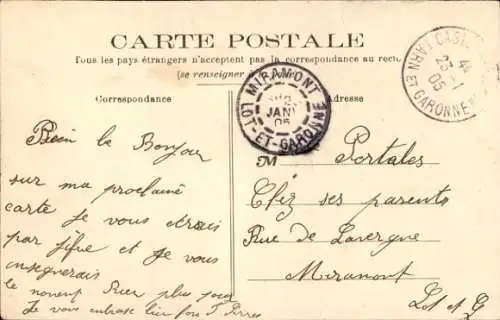 CARTE POSTALE
Tous les pays étrangers n'acceptent pas la correspondance au recto
(se renseigner à la Poste)
Correspondance
Adresse
MIRAMONT
JANV
05
LOT-ET-GARONNE
CAST
44
23-1
05
TARN ET GARONNE
Bien le Bonjour
sur ma proclaine
carte je vous
par et je vous
enseignerais
le plus pour
Je vous
M Portales
Chez ses parents
Rue de Lavergne
Miramont
Lot et G